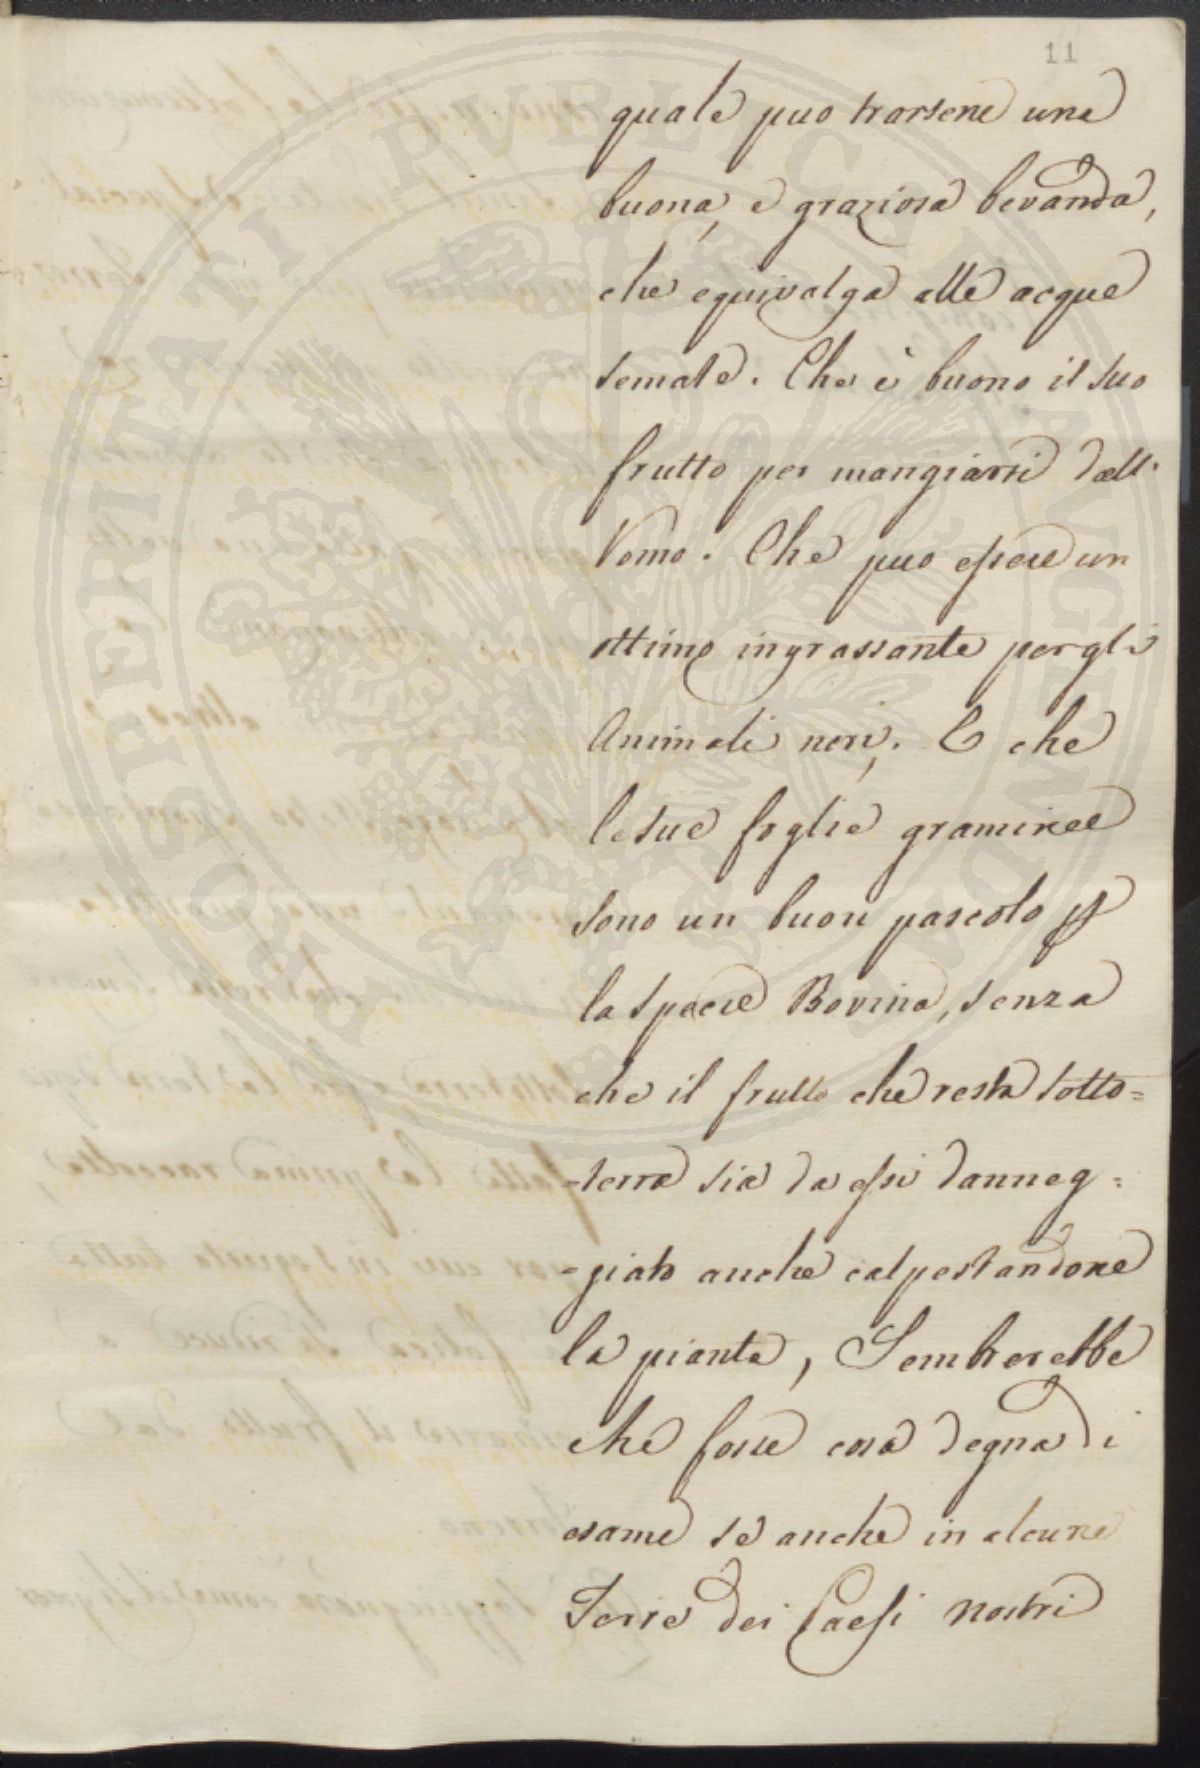 11
quale puo trarsene una
buona, e graziosa bevanda,
che equivalga alle acque
semate. Che è buono il suo
frutto per mangiarsi dall'
Vomo. Che puo essere un
ottimo ingrassante per gli
Animali neri. E che
le sue foglie graminee
sono un buon pascolo p
la specie Bovina, senza
che il frutto che resta sotto=
=terra sia da essi danneg=
=giato anche calpestandone
la pianta, Sembrerebbe
che fosse cosa degna di
esame se anche in alcune
Terre dei Paesi nostri
PROSPERITATI PVBLICAE AVGENDAE